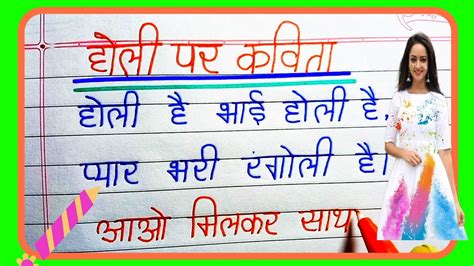 होली पर कविता
होली है भाई होली है,
प्यार भरी रंगोली है।
आओ मिलकर साथ